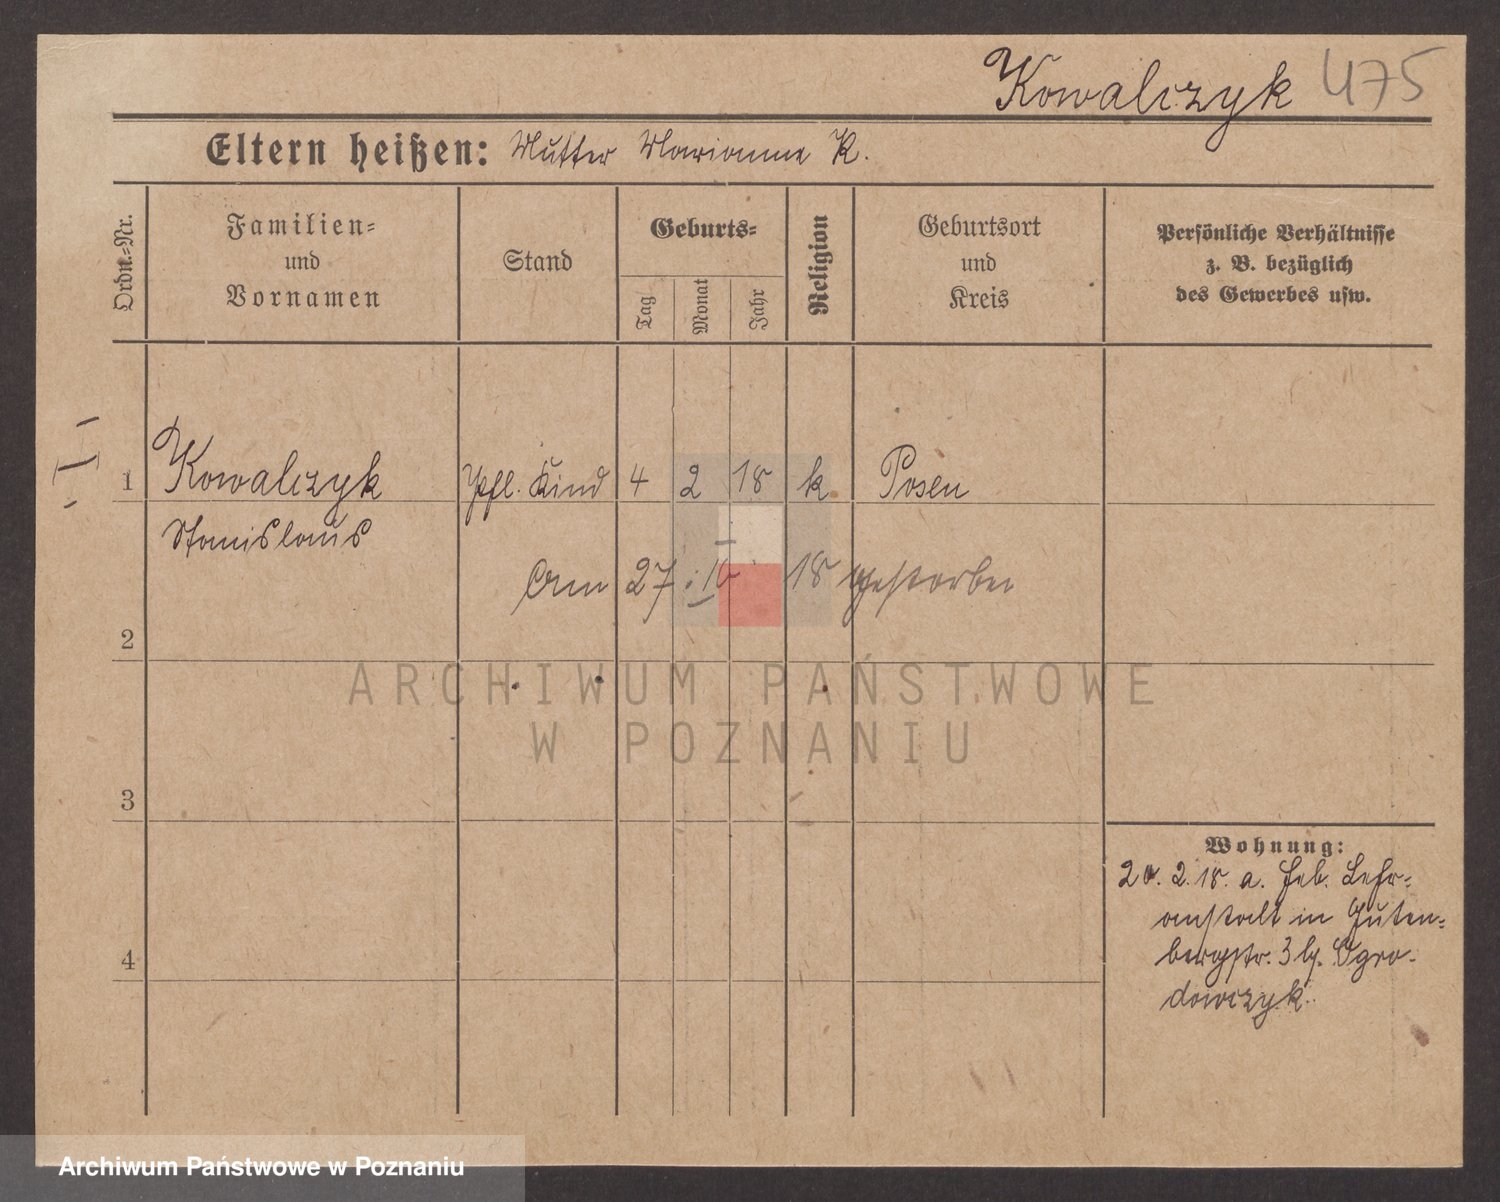 Kowalczyk 475
Eltern heißen: Mutter Marianne K.
Ordn.-Nr.
Familien-
und
Vornamen
Stand
Geburts-
Tag
Monat
Jahr
Religion
Geburtsort
und
Kreis
Persönliche Verhältnisse
z. B. bezüglich
des Gewerbes usw.
I
1 Kowalczyk Pfl. Kind 4 2 18 k Posen
Stanislaus
Am 27. 10 18 gestorben
2
ARCHIWUM PAŃSTWOWE
W POZNANIU
3
Wohnung:
20. 2. 18. a. Heb. Lehr-
anstalt in Guten-
bergstr. 3 b. Ogro-
dowczyk.
4
Archiwum Państwowe w Poznaniu